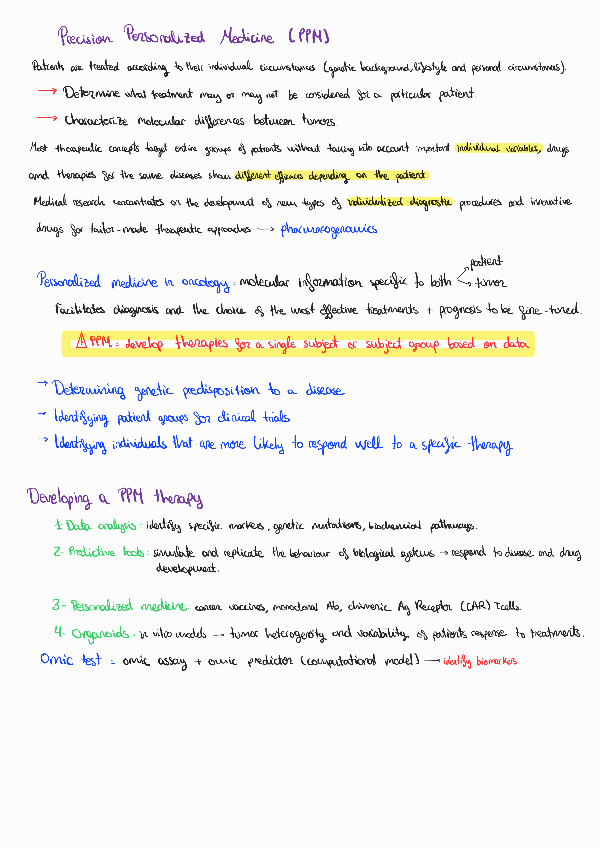 Precision Personalized Medicine (PPM)
Patients are treated according to their individual circumstances (genetic background, lifestyle and personal circumstances).
→ Determine what treatment may or may not be considered for a particular patient
→ Characterize molecular differences between tumors.
Most therapeutic concepts target entire groups of patients without taking into account important individual variables, drugs
and therapies for the same diseases show different effects depending on the patient
Medical research concentrates on the development of new types of individualized diagnostic procedures and innovative
drugs for tailor-made therapeutic approaches → pharmacogenomics
patient
Personalized medicine in oncology: molecular information specific to both → tumor
Facilitates diagnosis and the choice of the most effective treatments + prognosis to be fine-tuned.
⚠ PPM: develop therapies for a single subject or subject group based on data
→ Determining genetic predisposition to a disease
→ Identifying patient groups for clinical trials
→ Identifying individuals that are more likely to respond well to a specific therapy
Developing a PPM therapy
1. Data analysis: identify specific markers, genetic mutations, biochemical pathways.
2. Predictive tools: simulate and replicate the behaviour of biological systems → respond to disease and drug
development.
3- Personalized medicine: cancer vaccines, monoclonal Ab, chimeric Ag Receptor (CAR) Tcells.
4. Organoids: in vitro models → tumor and variability of patients response to treatments.
Omic test = omic assay + omic predictor (computational model) → identify biomarkers